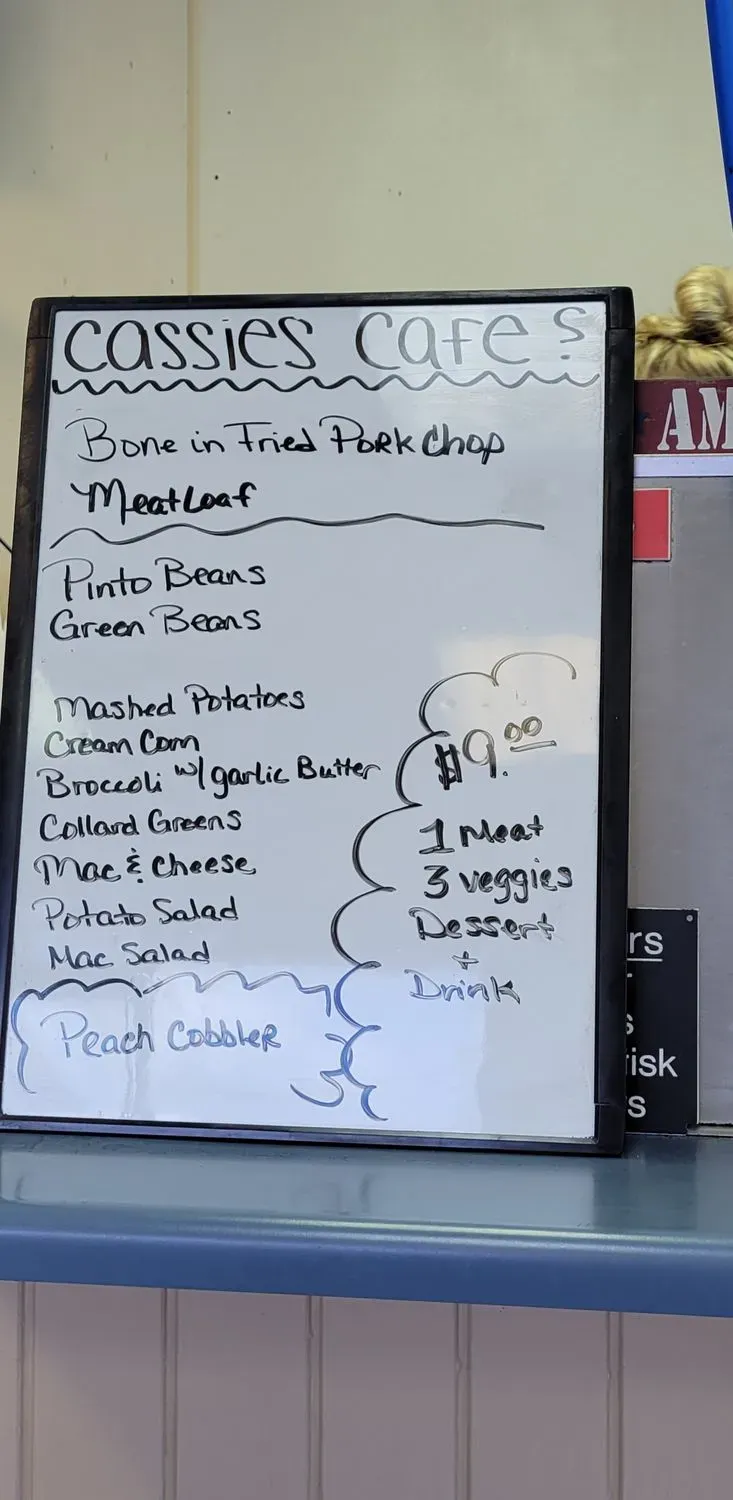 Cassies Cafe S
Bone in Fried Pork Chop
Meat Loaf
Pinto Beans
Green Beans
Mashed Potatoes
Cream Corn
Broccoli w/ garlic Butter
Collard Greens
Mac & Cheese
Potato Salad
Mac Salad
Peach Cobbler
$9.00
1 Meat
3 veggies
Dessert
+
Drink
AM
rs
s
isk
s